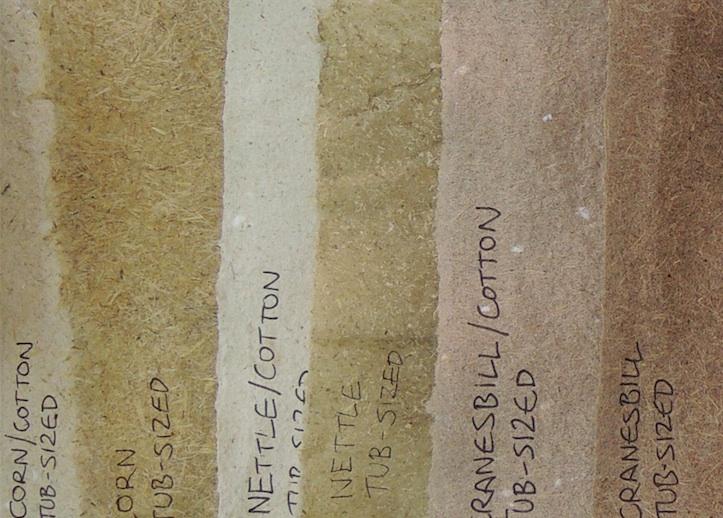 CORN/COTTON
TUB-SIZED
ORN
TUB-SIZED
NETTLE/COTTON
TUB SIZED
NETTLE
TUB-SIZED
RANESBILL/COTTON
UB-SIZED
CRANESBILL
TUB-SIZED